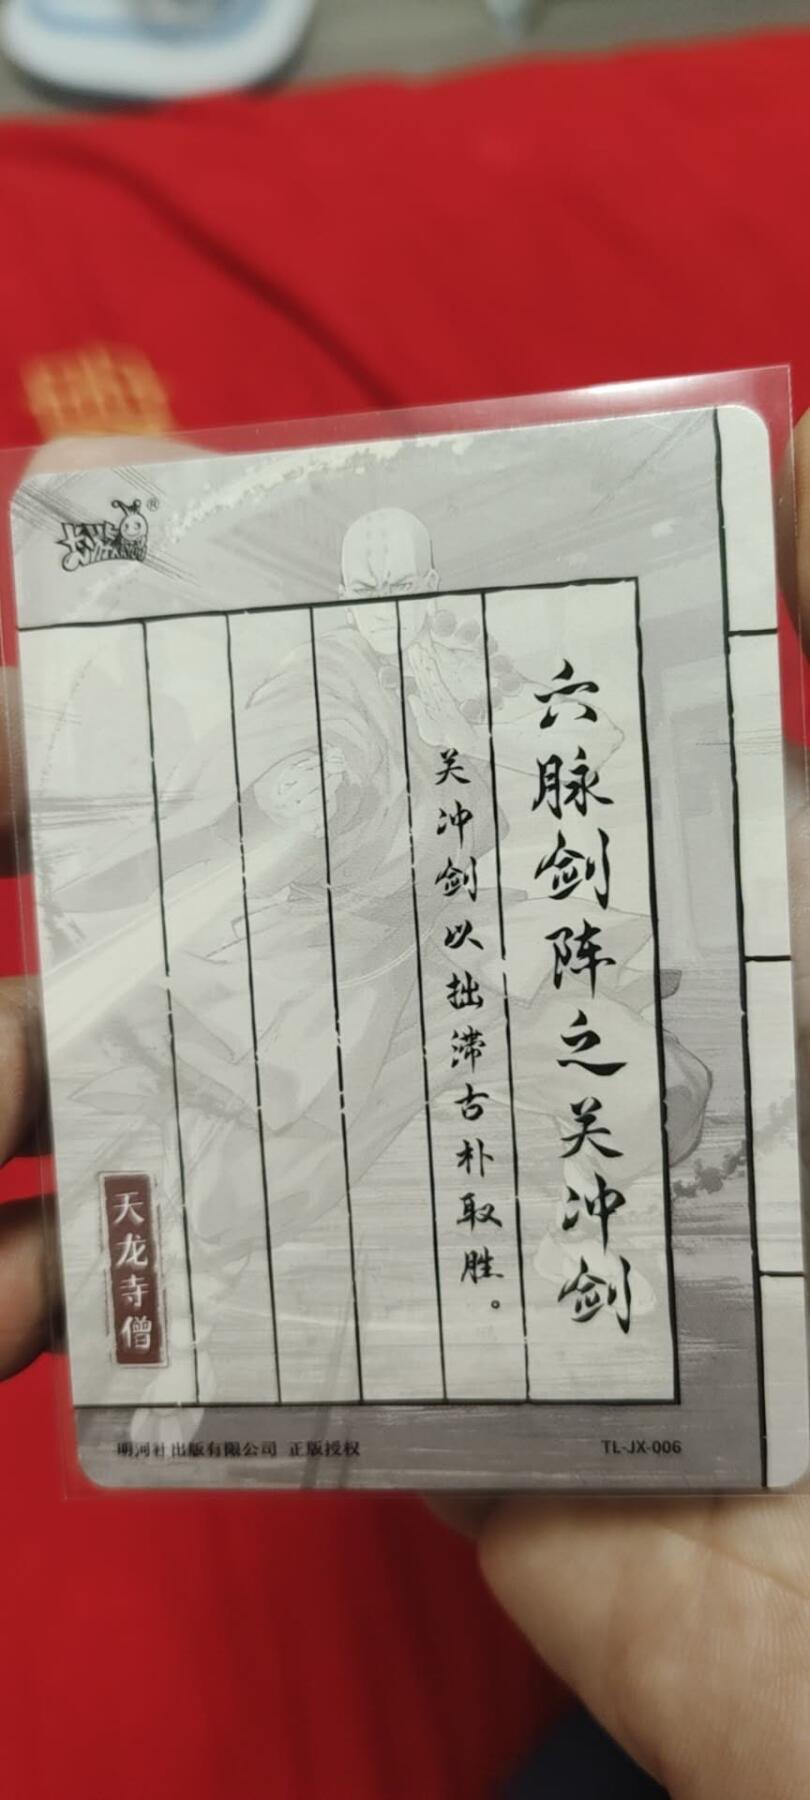 六脉剑阵之关冲剑
关冲剑以拙滞古朴取胜。
天龙寺僧
明河社出版有限公司 正版授权
TL-JX-006